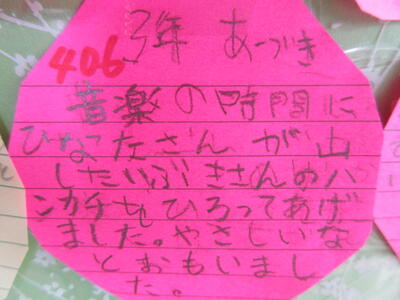 3年 あづき
406
音楽の時間に
ひなたさんが
したいぶきさんのハ
ンカチをひろってあげ
ました。やさしいな
とおもいまし
た。